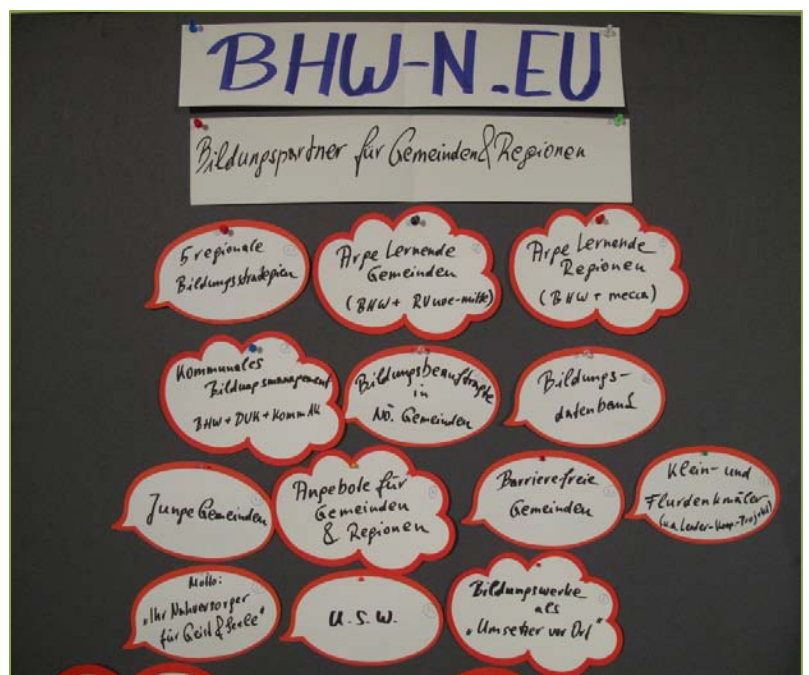 BHW-N.EU
Bildungspartner für Gemeinden & Regionen
5 regionale
Bildungsstrategien
Arge Lernende
Gemeinden
(BHW + RVnoe-mitte)
Arge Lernende
Regionen
(BHW + mecca)
Kommunales
Bildungsmanagement
BHW + DUK + KommAK
Bildungsbeauftragte
in
NÖ. Gemeinden
Bildungs-
datenbank
Junge Gemeinden
Angebote für
Gemeinden
& Regionen
Barrierefreie
Gemeinden
Klein- und
Flurdenkmäler
(u.a. Leader-Koop.-Projekt)
Motto:
"Ihr Nahversorger
für Geist & Seele"
U. S. W.
Bildungswerke
als
"Umsetzer vor Ort"